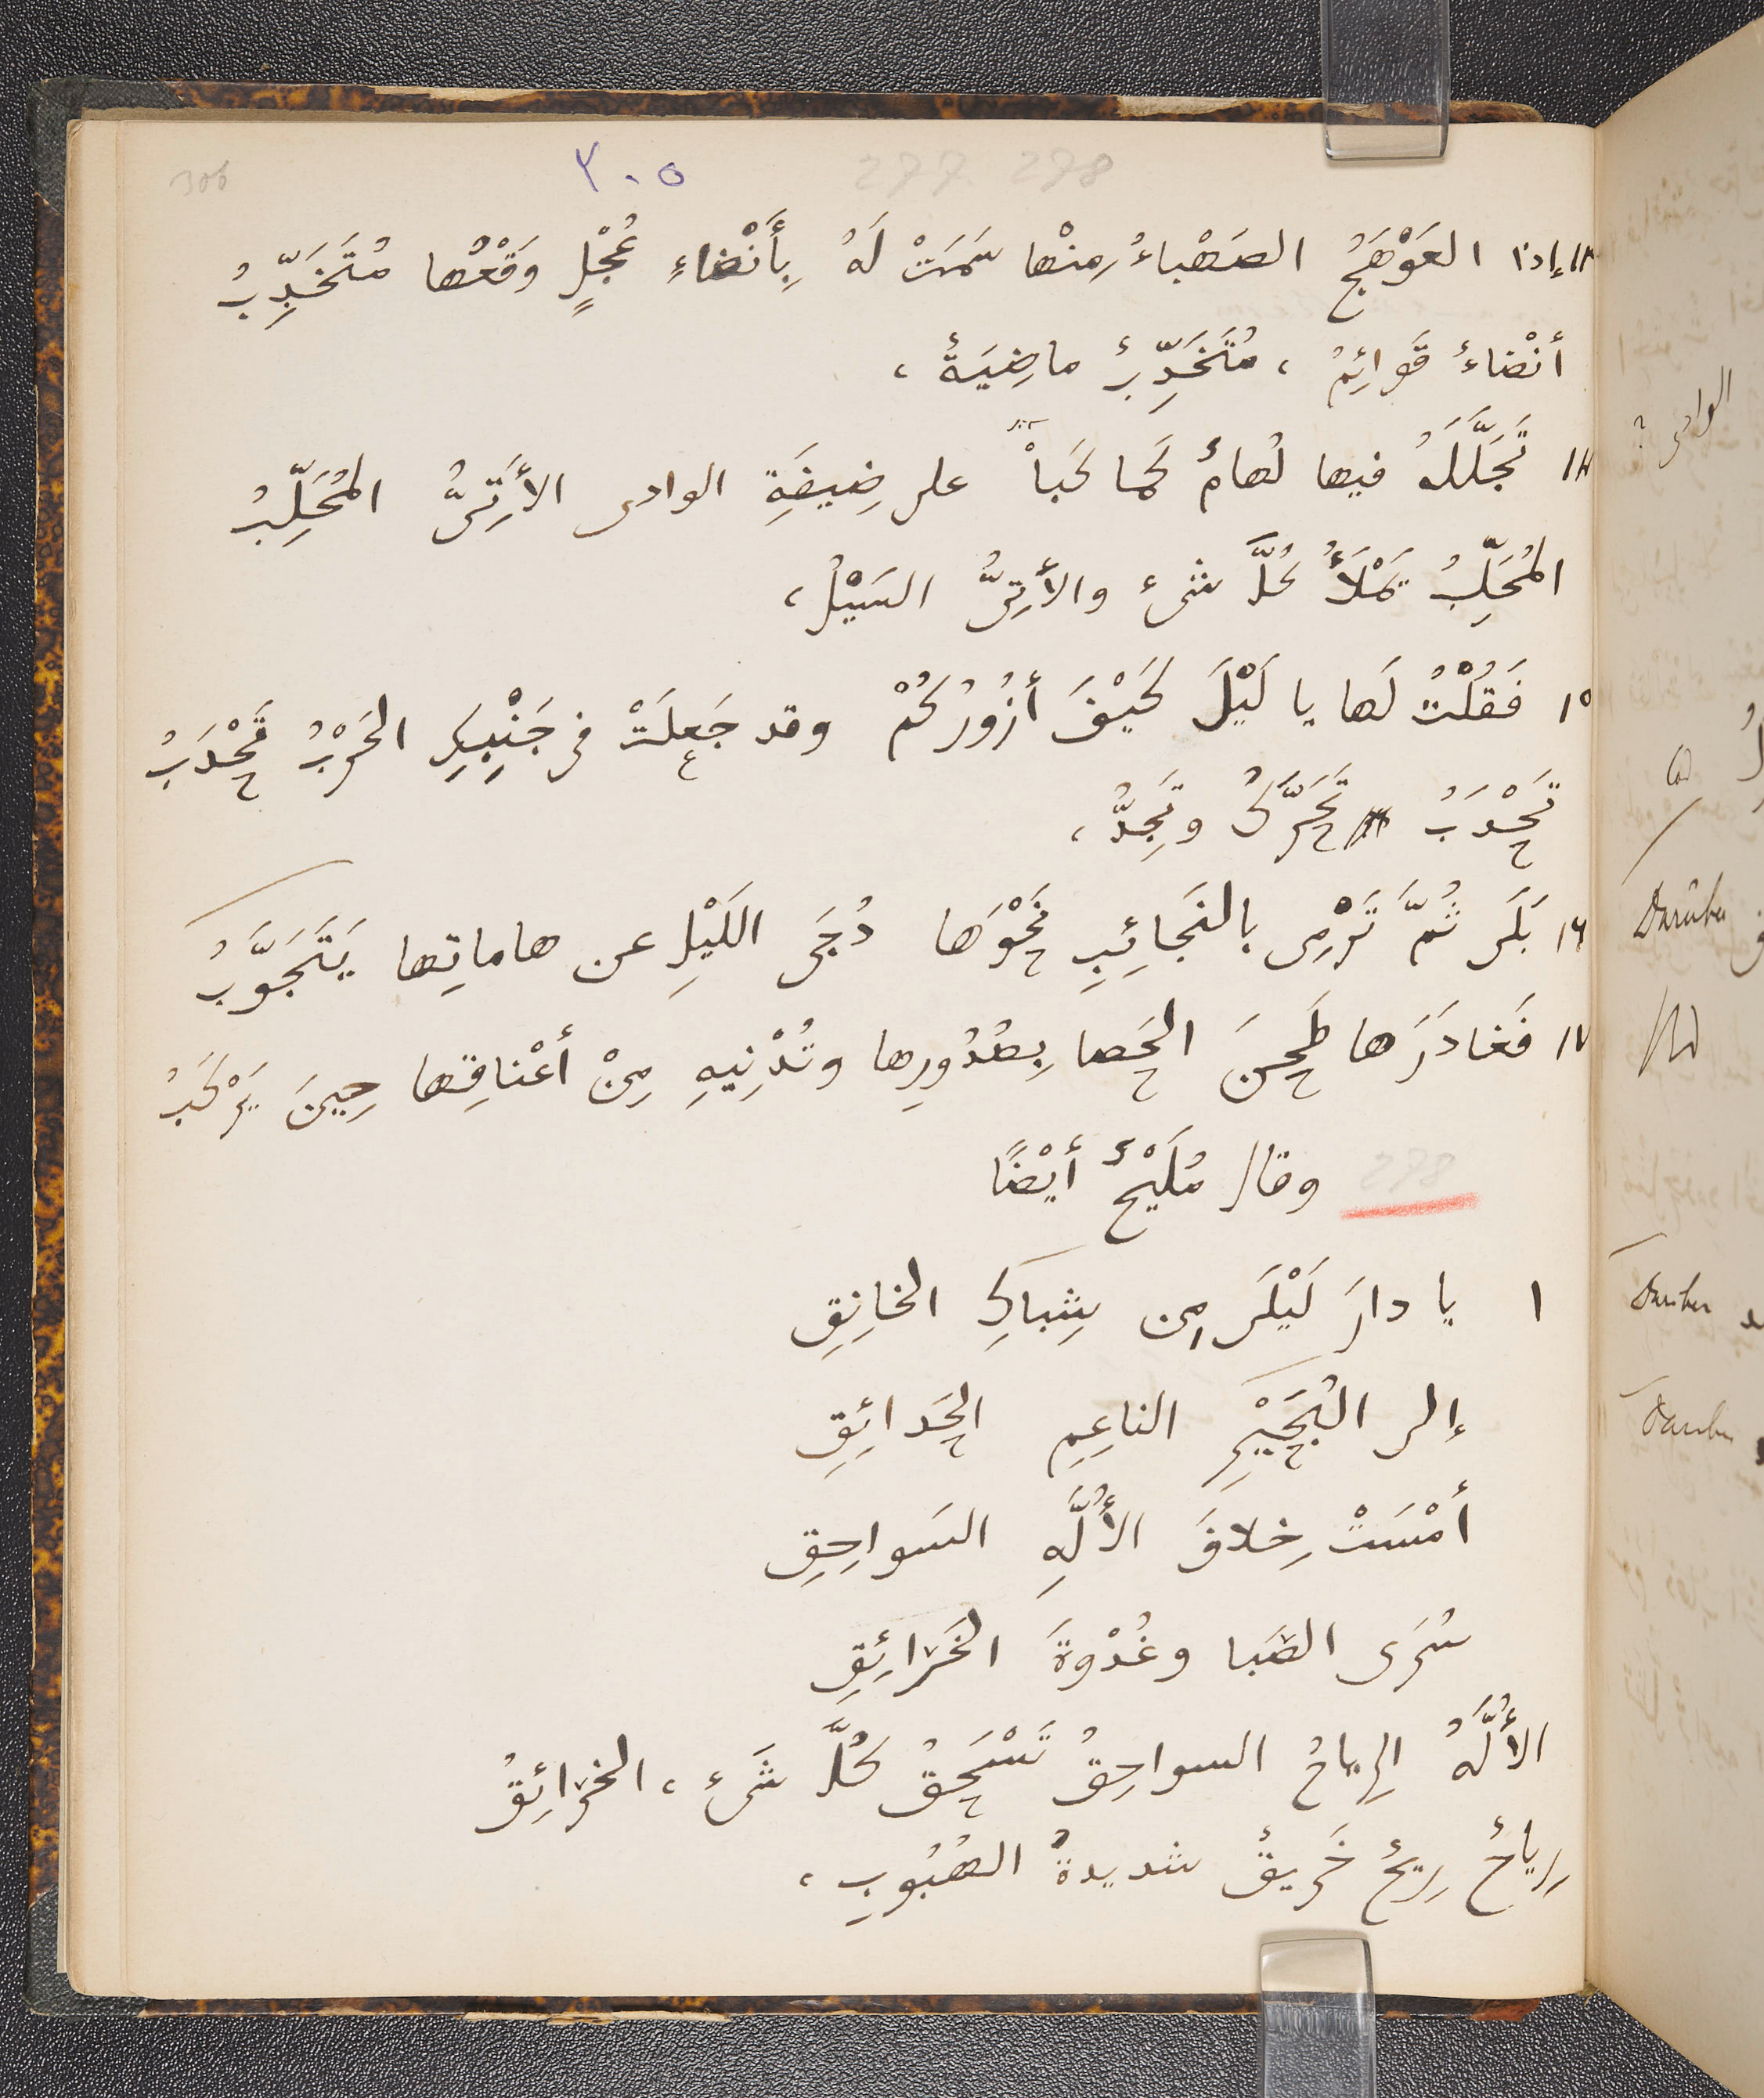 306 ٣٠٥ 277. 278
١٣ إذا العَوْهَجُ الصَهْباءُ مِنْها سَمَتْ لَهُ بِأَنْضاءِ عُجْلٍ وَقْعُها مُتَخَدِّبُ
أنْضاءٌ قَوائِمُ ، مُتَخَدِّبٌ ماضِيَةٌ ،
١٤ تَجَلَّلَهُ فيها لُهامٌ كَما كَبَاْ على ضِيفَةِ الوادى الأَتِىُّ المُحَلِّبُ
المُحَلِّبُ يَمْلَأُ كُلَّ شىء والأَتِىُّ السَيْلُ ،
١٥ فَقُلْتُ لَها يا لَيْلَ كَيْفَ أزُورُكُمْ وقد جَعِلَتْ فى جَنْبِكِ الحَرْبُ تَحْدَبُ
تَحْدَبُ تَحَرَّكُ وتَجِدُّ ،
١٦ بَلَى ثُمَّ تَرْمِى بالنَجائِبِ نَحْوَها دُجَى اللَيْلِ عن هاماتِها يَتَجَوَّبُ
١٧ فَغادَرَها طَحِنَ الحَصا بِصُدُورِها وتُدْنِيهِ مِنْ أعْناقِها حِينَ يَرْكَبُ
278 وقال مُلَيْحٌ أيْضًا
١ يا دارَ لَيْلَى مِن شِباكِ الخانِقِ
إلى البُجَيْرِ الناعِمِ الحَدائِقِ
أمْسَتْ خِلافَ الأُلَّهِ السَواحِقِ
سُرَى الصَبا وغُدْوةَ الخَرائِقِ
الأُلَّهُ الرِياحُ السواحِقُ تَسْحَقُ كُلَّ شَىءٍ ، الخرائِقُ
رِياحٌ رِيحٌ خَرِيقٌ شديدةُ الهُبُوبِ ،
الوادى ?
Darüber
Darüber
Darüber